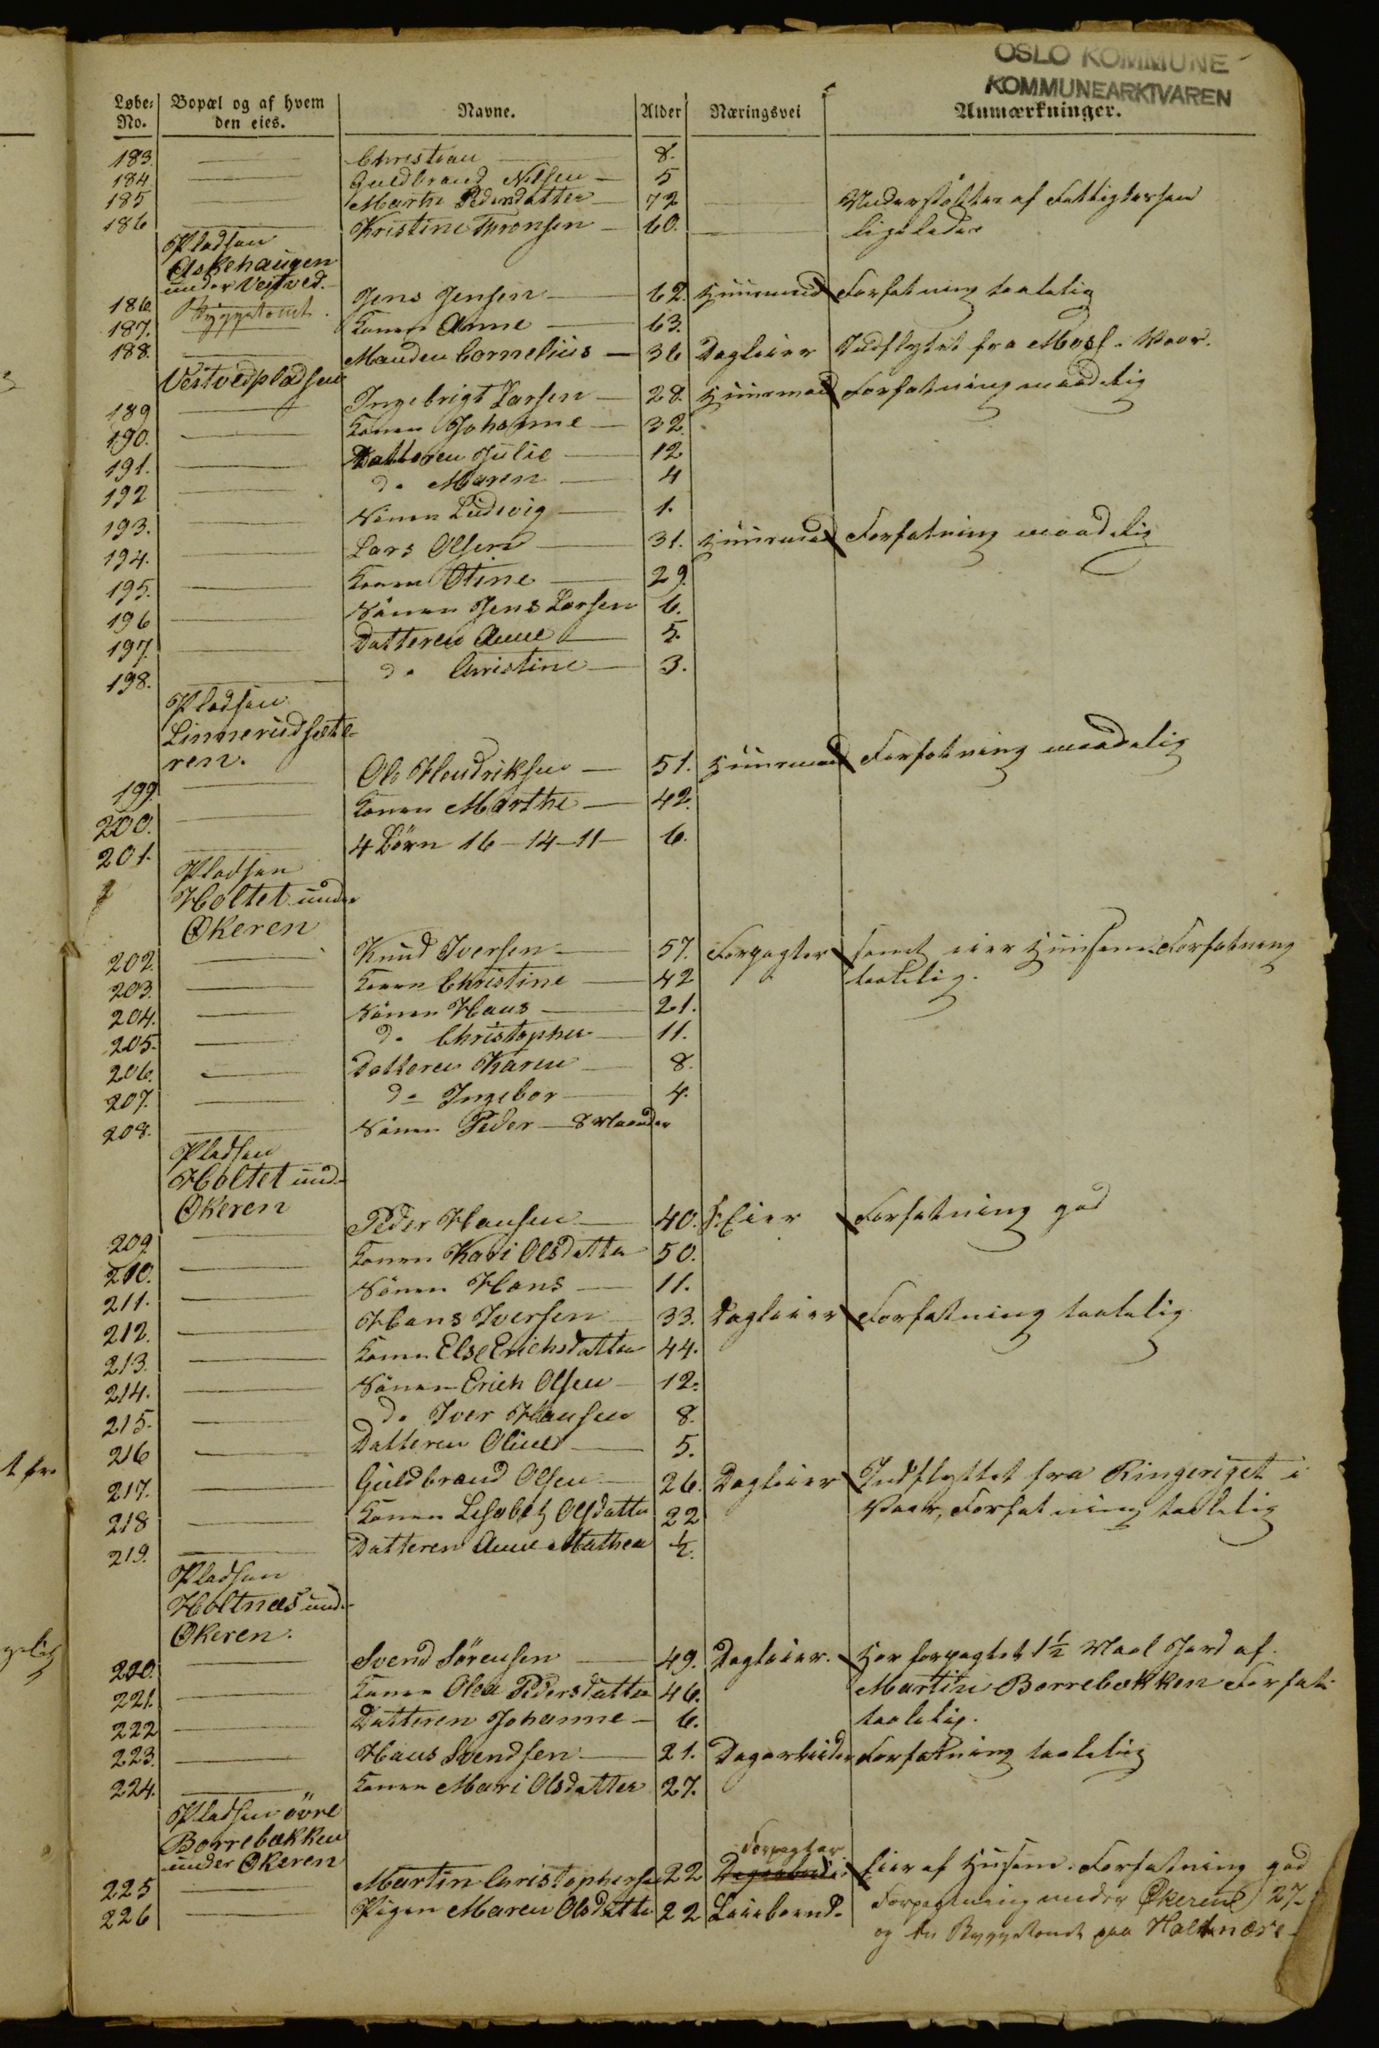 OSLO KOMMUNE
KOMMUNEARKIVAREN
Løbe-No. Bopæl og af hvem den eies. Navne. Alder Næringsvei Anmærkninger.
183. — Christian — 8.
184 — Guldbrand Nilsen — 5
185 — Marthe Pedersdatter — 72 — Understøttes af Fattigkassen
186 — Kristine Thronsen — 60. — ligeledes
Pladsen
Askehaugen
under Veitved.
186. Byggetomt. Jens Jensen — 62. Huusmand Forfatning taalelig
187. Konen Anne — 63.
188. — Manden Cornelius — 36 Dagleier Indflyttet fra Moss. Vaar.
Veitvedpladsen
189 — Ingebrigt Larsen — 28. Huusmand Forfatning maadelig
190. — Konen Johanne — 32
191. — Datteren Julie — 12
192 — do Maren — 4
193. — Sönen Ludvig — 1.
194. — Lars Olsen — 31. Huusmand Forfatning maadelig
195. — Konen Otine — 29.
196 — Sönen Jens Larsen 6.
197. — Datteren Anne — 5.
198. — do Christine — 3.
Pladsen
Linnerudsæte-
ren.
199. — Ole Hendriksen — 51. Huusmand Forfatning maadelig
200. — Konen Marthe — 42.
201. — 4 Börn 16-14-11- 6.
Pladsen
Holtet under
Økeren
202. — Knud Iversen — 57. Forpagter samt eier Huusene. Forfatning
203. — Konen Christine — 42 taalelig.
204. — Sönen Hans — 21.
205. — do Christopher — 11.
206. — Datteren Karen — 8.
207. — do Ingebor — 4.
208. — Sönen Peder — 8 Maaneder
Pladsen
Holtet und-
Økeren
209. — Peder Hansen — 40. Eier Forfatning god
210. — Konen Kari Olsdatter 50.
211. — Sönen Hans — 11.
212. — Hans Iversen 33. Dagleier Forfatning taalelig
213. — Konen Else Erichsdatter 44.
214. — Sönen Erich Olsen — 12.
215. — do Iver Hansen 8.
216 — Datteren Oline — 5.
217. — Guldbrand Olsen — 26. Dagleier Indflyttet fra Ringeriget i
218 — Konen Lisabet Olsdatter 22 Vaar, Forfatning taalelig
219. — Datteren Anne Mathea ½.
Pladsen
Holtnæs und-
Økeren.
220. — Svend Sörensen — 49. Dagleier. Har forpagtet 1½ Maal Jord af
221. — Konen Olea Pedersdatter 46. Martin Borrebækken Forfat.
222 — Datteren Johanne — 6. taalelig.
223. — Hans Svendsen — 21. Dagarbeider Forfatning taalelig
224. — Konen Mari Olsdatter 27.
Pladsen övre
Borrebækken
under Økeren
Forpagter
225 — Martin Christophersen 22 Dagarbeider Eier af Husene. Forfatning god
226 — Pigen Maren Olsdatter 22 Forpagtning under Økerene 27
og en Byggetomt paa Holtnæs